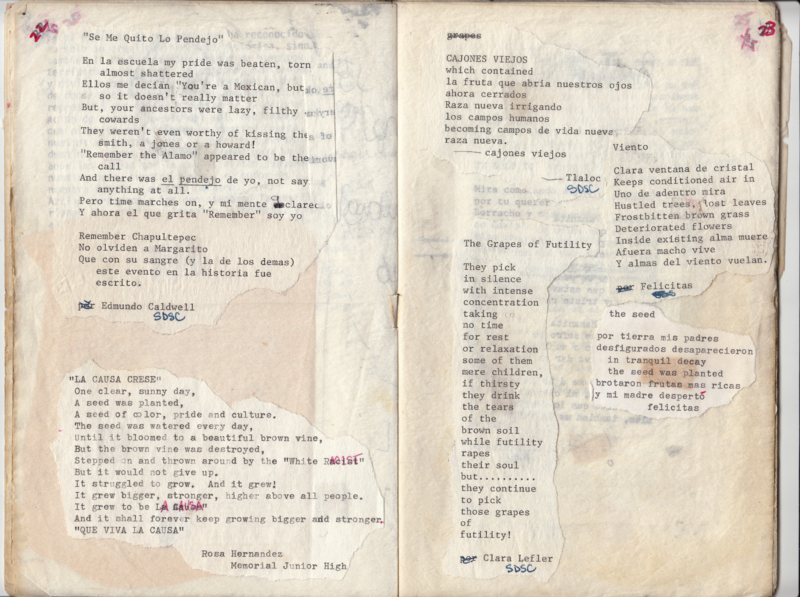 22
"Se Me Quito Lo Pendejo"
En la escuela my pride was beaten, torn
almost shattered
Ellos me decían "You're a Mexican, but
so it doesn't really matter
But, your ancestors were lazy, filthy
cowards
They weren't even worthy of kissing the
smith, a jones or a howard!
"Remember the Alamo" appeared to be the
call
And there was el pendejo de yo, not say
anything at all.
Pero time marches on, y mi mente declared
Y ahora el que grita "Remember" soy yo
Remember Chapultepec
No olviden a Margarito
Que con su sangre (y la de los demas)
este evento en la historia fue
escrito.
por Edmundo Caldwell
SDSC
"LA CAUSA CRESE"
One clear, sunny day,
A seed was planted,
A seed of color, pride and culture.
The seed was watered every day,
Until it bloomed to a beautiful brown vine,
But the brown vine was destroyed,
Stepped on and thrown around by the "White Racist"
But it would not give up.
It struggled to grow. And it grew!
It grew bigger, stronger, higher above all people.
It grew to be LA CAUSA"
And it shall forever keep growing bigger and stronger.
"QUE VIVA LA CAUSA"
Rosa Hernandez
Memorial Junior High
23
grapes
CAJONES VIEJOS
which contained
la fruta que abria nuestros ojos
ahora cerrados
Raza nueva irrigando
los campos humanos
becoming campos de vida nueva,
raza nueva.
cajones viejos
Tlaloc
SDSC
Mira como
por tu querer
Borracho y
The Grapes of Futility
They pick
in silence
with intense
concentration
taking
no time
for rest
or relaxation
some of them
mere children,
if thirsty
they drink
the tears
of the
brown soil
while futility
rapes
their soul
but..........
they continue
to pick
those grapes
of
futility!
por Clara Lefler
SDSC
Viento
Clara ventana de cristal
Keeps conditioned air in
Uno de adentro mira
Hustled trees, lost leaves
Frostbitten brown grass
Deteriorated flowers
Inside existing alma muere
Afuera macho vive
Y almas del viento vuelan.
por Felicitas
SDS
the seed
por tierra mis padres
desfigurados desaparecieron
in tranquil decay
the seed was planted
brotaron frutas mas ricas
y mi madre despertó
felicitas